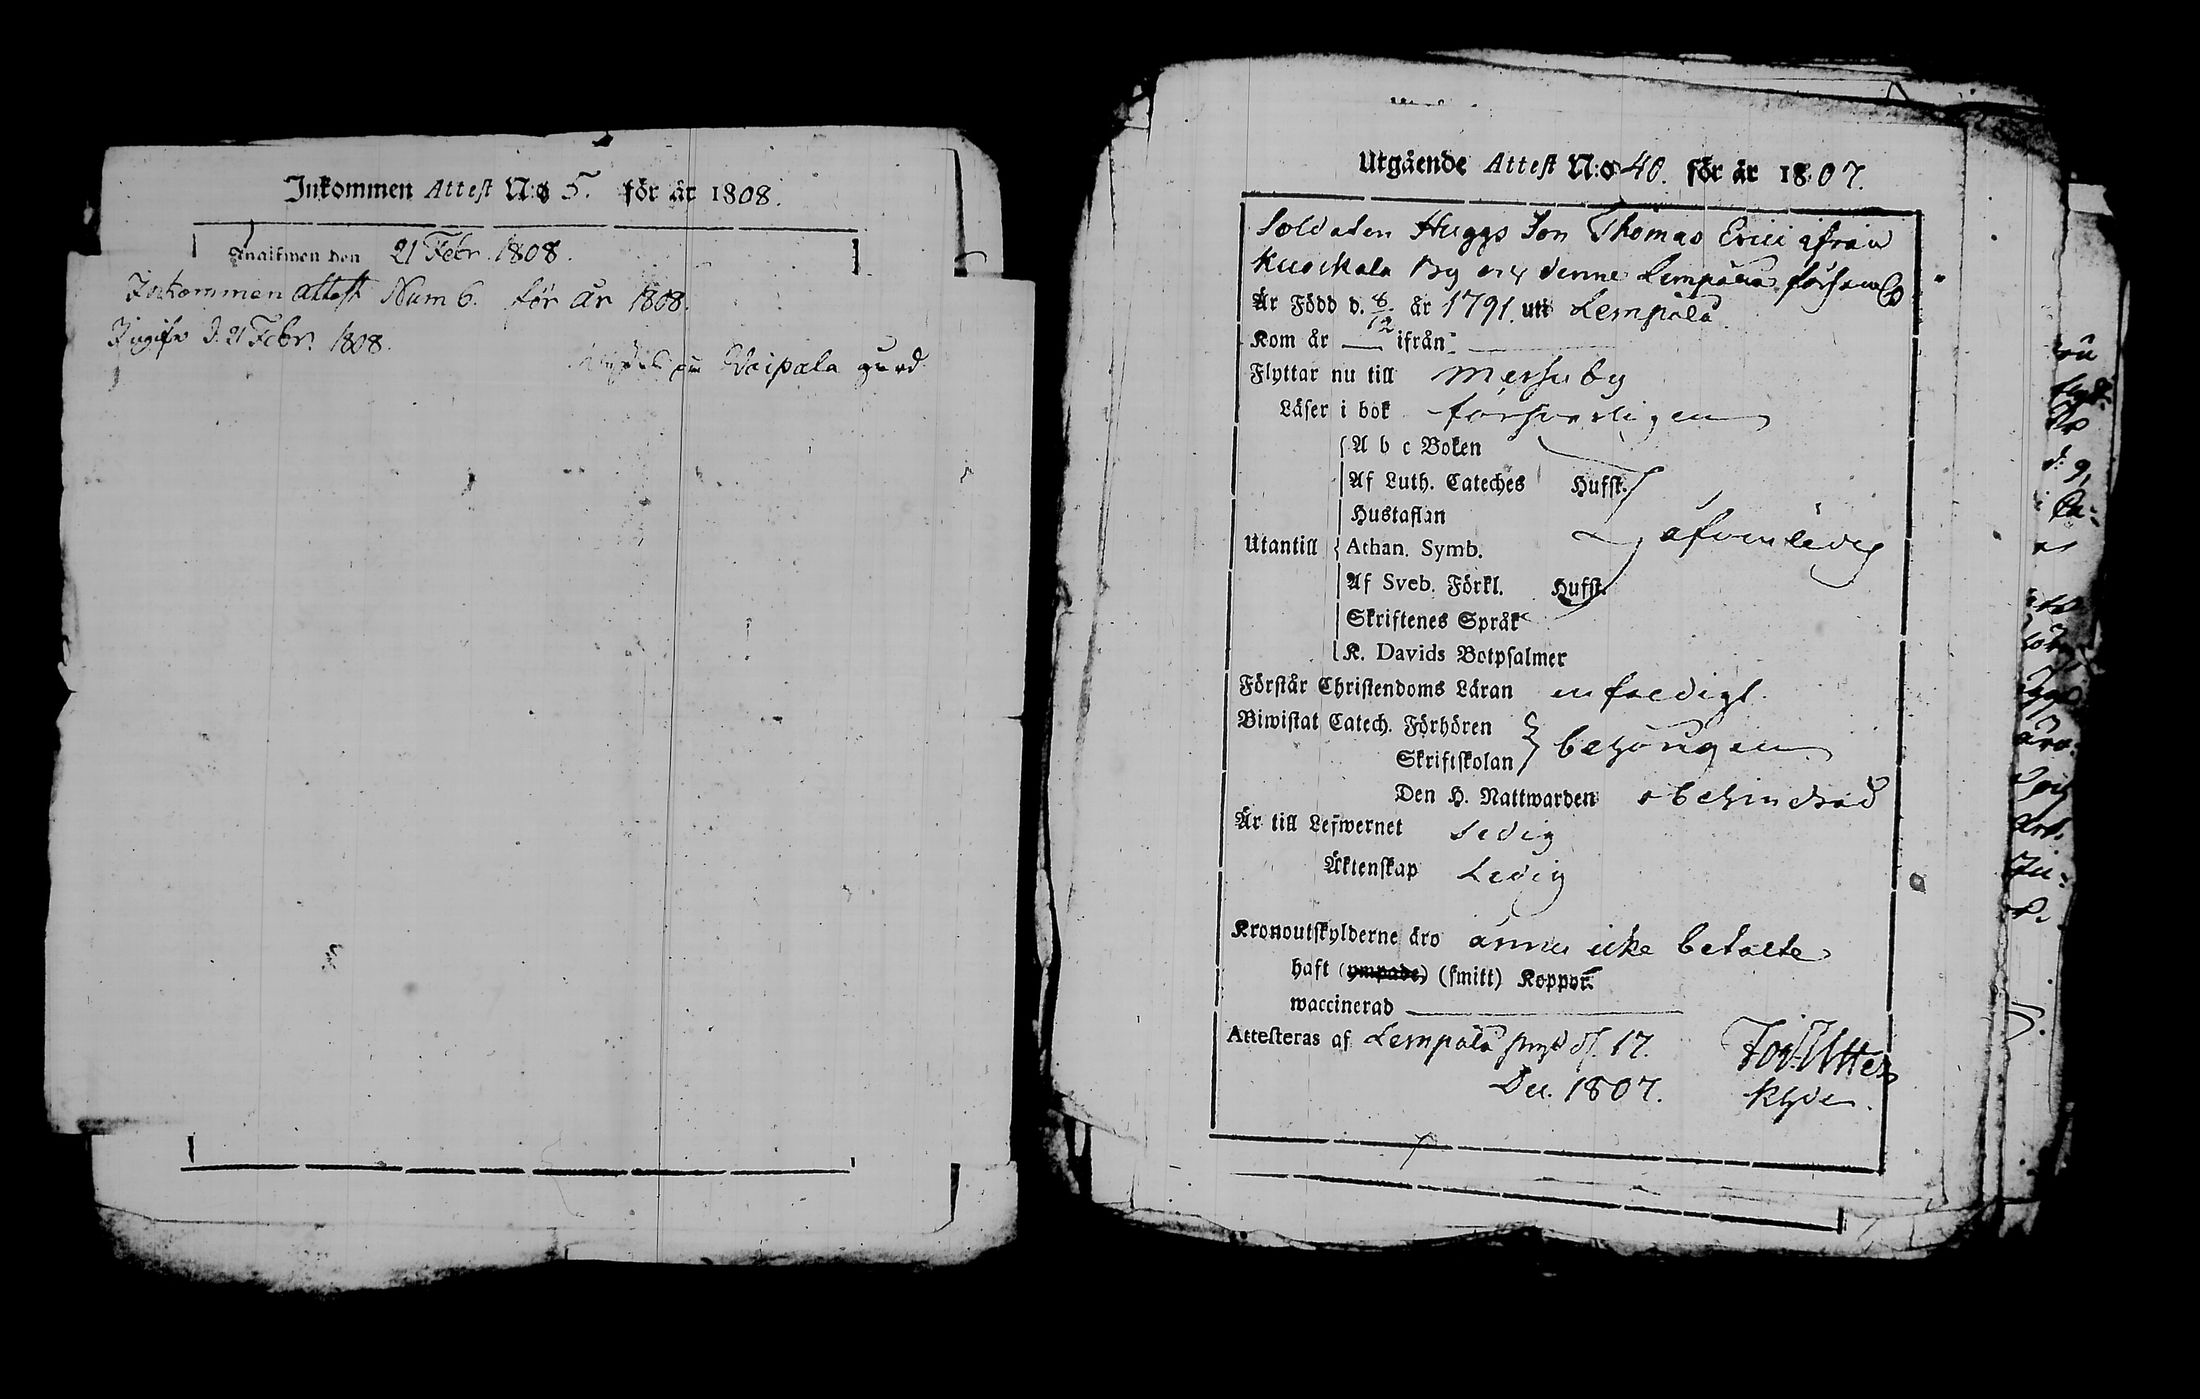 Inkommen Attest N:o 5. för år 1808.
Anaifwen den 21 Febr. 1808.
Inkommen attest Num 6. för år 1808.
Ingifn d. 21 Febr. 1808.
Woipala gård
Utgående Attest N:o 40. för år 1807.
Soldaten Huggs Son Thomas Erici ifrån
Kuockala By och denne Lempälä
Är Född d. 8/12 år 1791. uti Lempälä
Kom år — ifrån —
Flyttar nu till Messuby
Läser i bok försvarligen
A b c Boken
Af Luth. Cateches Hufst.
Hustaflan
Utantill Athan. Symb.
Af Sveb. Förkl. Hufst.
Skriftenes Språk
K. Davids Botpsalmer
Förstår Christendoms Läran enfaldigt
Biwistat Catech. Förhören
Skriftskolan behörigen
Den H. Nattwarden obehindrad
Är till Lefwernet
Äktenskap Ledig
Kronoutskylderne äro ännu icke betalte
haft (ympade) (smitt) Koppor.
waccinerad —
Attesteras af Lempälä d. 17.
Dec. 1807.